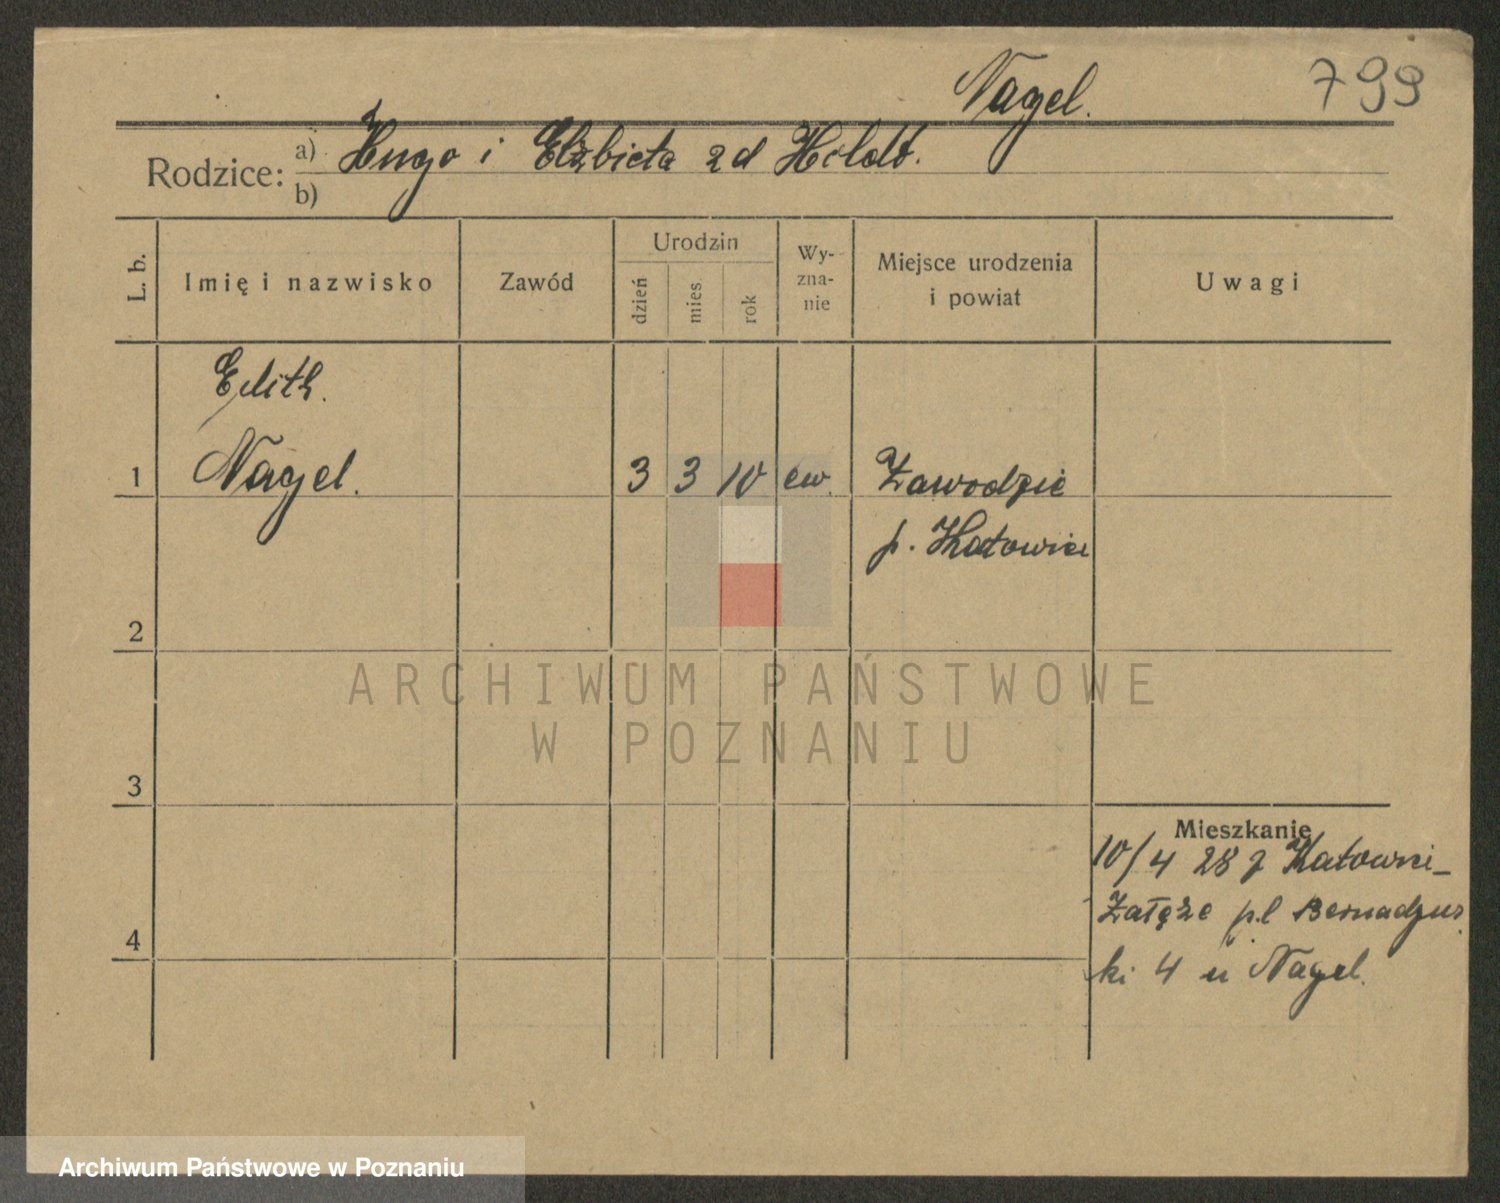 Nagel. 799
Rodzice: a) Hugo i Elżbieta zd Holdt.
b)
L. b. Imię i nazwisko Zawód Urodzin dzień mies rok Wy-zna-nie Miejsce urodzenia i powiat Uwagi
Edith.
1 Nagel. 3 3 10 ew. Zawodzie
p. Katowice
2
ARCHIWUM PAŃSTWOWE
W POZNANIU
3
Mieszkanie
10/4 28 z Katowic-
Załęże pl Bernadzyńs
4
ki 4 u Nagel.
Archiwum Państwowe w Poznaniu